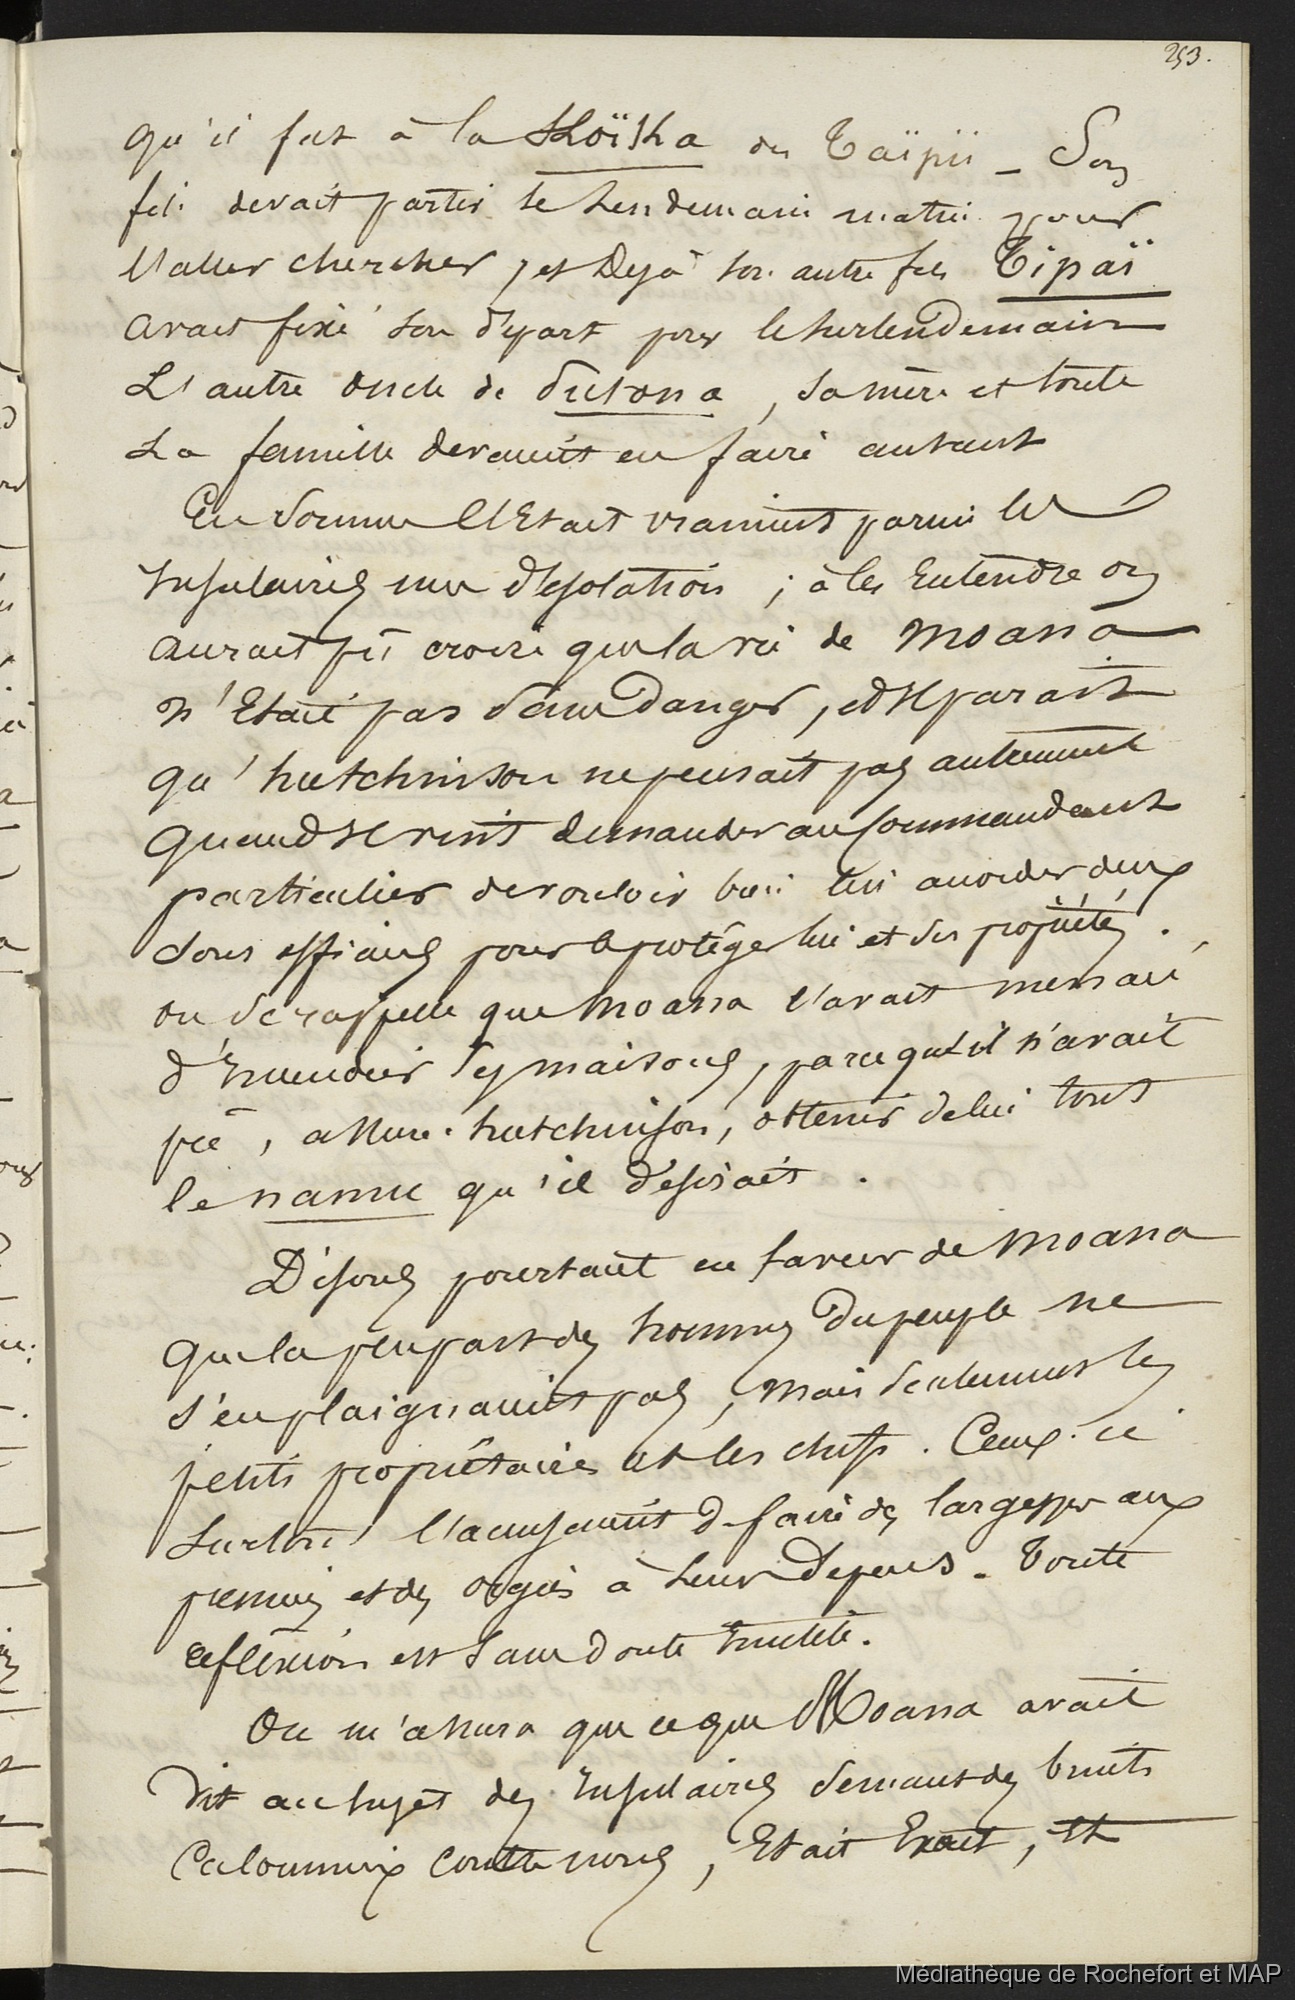 253.
qu'il fut à la Koïka des Taïpii _ Son
fils devait partir le lendemain matin pour
l'aller chercher, et déjà son autre fils Tipaï
avait fixé son départ pour le surlendemain
L'autre oncle de , sa mère et toute
La famille devaient en faire autant
En somme c'Etait vraiment parmi les
Insulaires une désolation ; à les Entendre on
aurait pû croire que la vie de Moana
n'Etait pas sans danger, et il parait
qu'hutchinson ne pensait pas autrement
quand il vint demander au Commandant
particulier de vouloir bien lui accorder deux
sous officiers pour le protéger lui et ses propriétés.
on se rappelle que Moana l'avait menacé
d'Incendier ses maisons, parcequ'il n'avait
pû, assure hutchinson, obtenir de lui tout
le namu qu'il désirait.
Disons pourtant en faveur de Moana
que la plupart des hommes du peuple ne
s'en plaignaient pas, mais seulement les
petits propriétaires et les chefs. Ceux-ci
surtout l'accusaient de faire des largesses aux
premiers et des orgies à leurs dépens. Toute
réflexion est sans doute Inutile.
On m'assura que ce que Moana avait
dit au sujet des Insulaires semant des bruits
Calomnieux contre nous, Etait Exact, et
Médiathèque de Rochefort et MAP